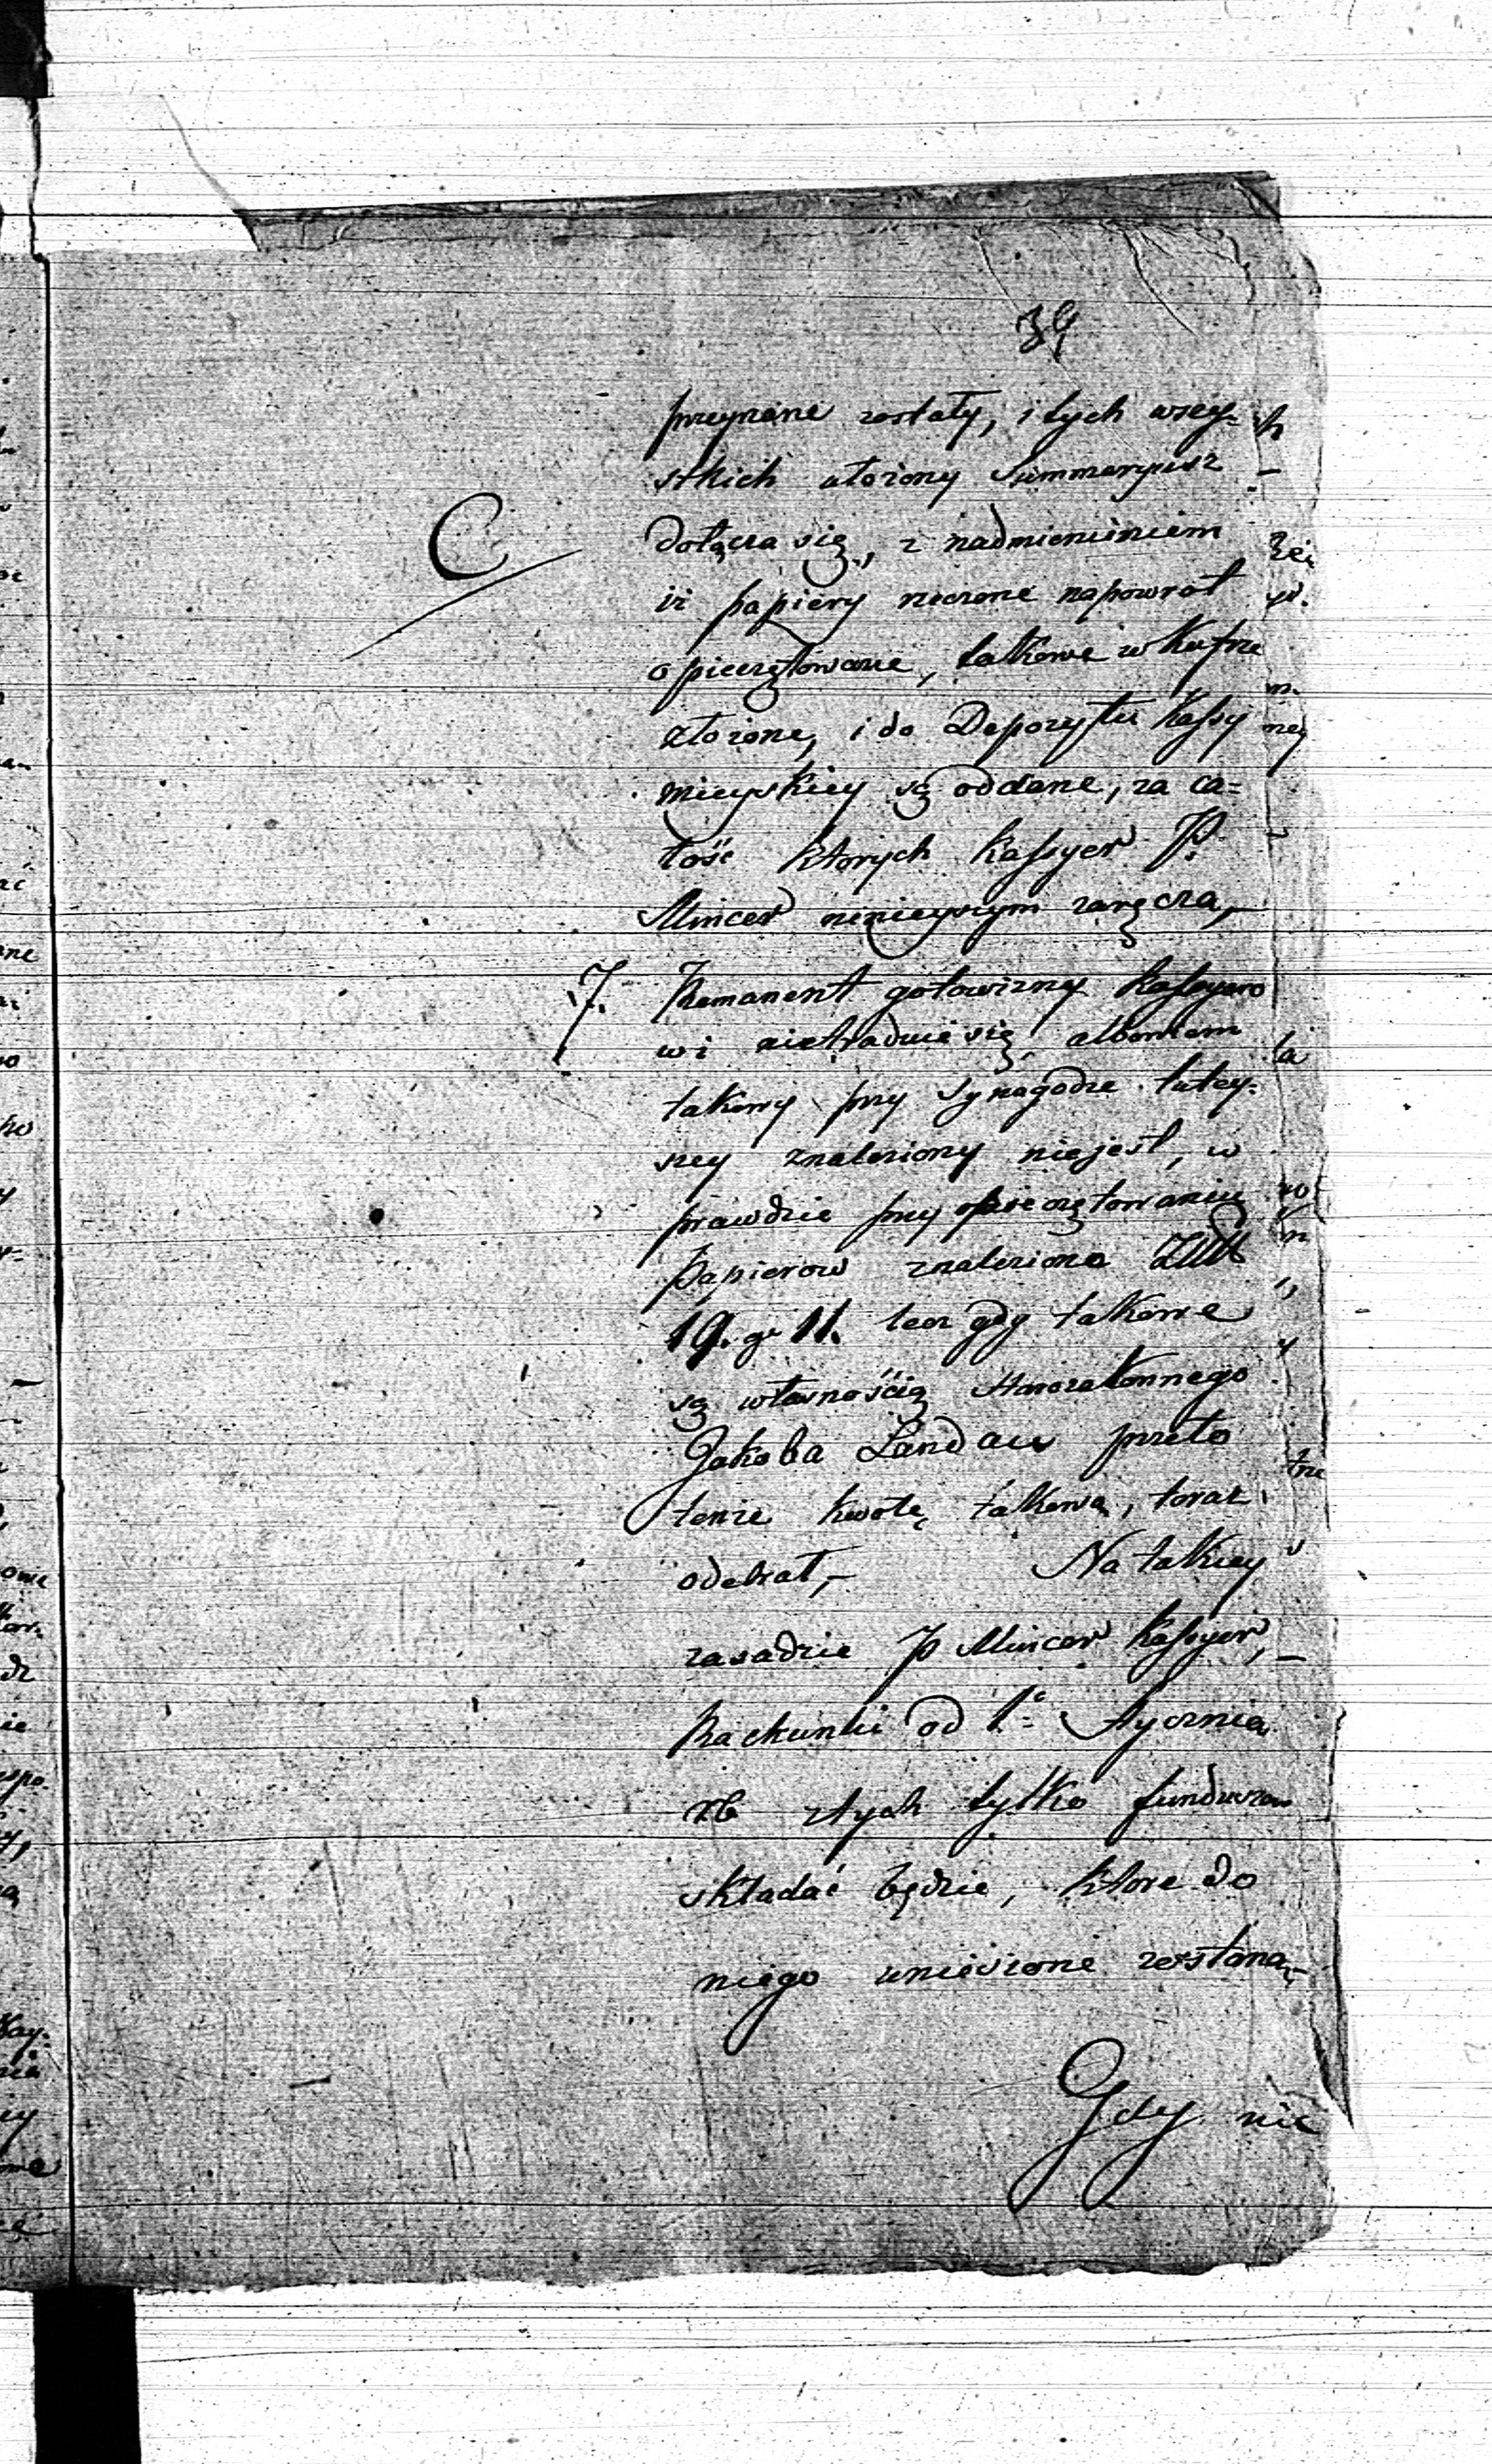 39
przeyrzane zostały, i tych wszy-
stkich ułożony Summaryusz
C
dołącza się, z nadmienieniem
iż papiery rzeczone napowrot
opieczętowane, takowe w Kufrze
złożone, i do Depozytu Kassy
mieyskiey są oddane, za ca=
łość ktorych Kassyer P.
Mincer ninieyszym zaręcza,-
7. Remanent gotowizny Kassyero
wi nietraduie się albowiem
takowy przy Synagodze tutey-
szey znaleziony niejest, w
prawdzie przy opieczętowaniu
papierow znaleziono
19. gr 11. lecz gdy takowe
są własnością Starozakonnego
Jakoba Landau przeto
tenże kwotę takową, toraz
odebrał,- Na takiey
zasadzie P Mincer Kassyer,
Rachunki od 1. Stycznia
rb ztych tylko funduszow
składać będzie, ktore do
niego wniesione zostaną,-
Gdy nic